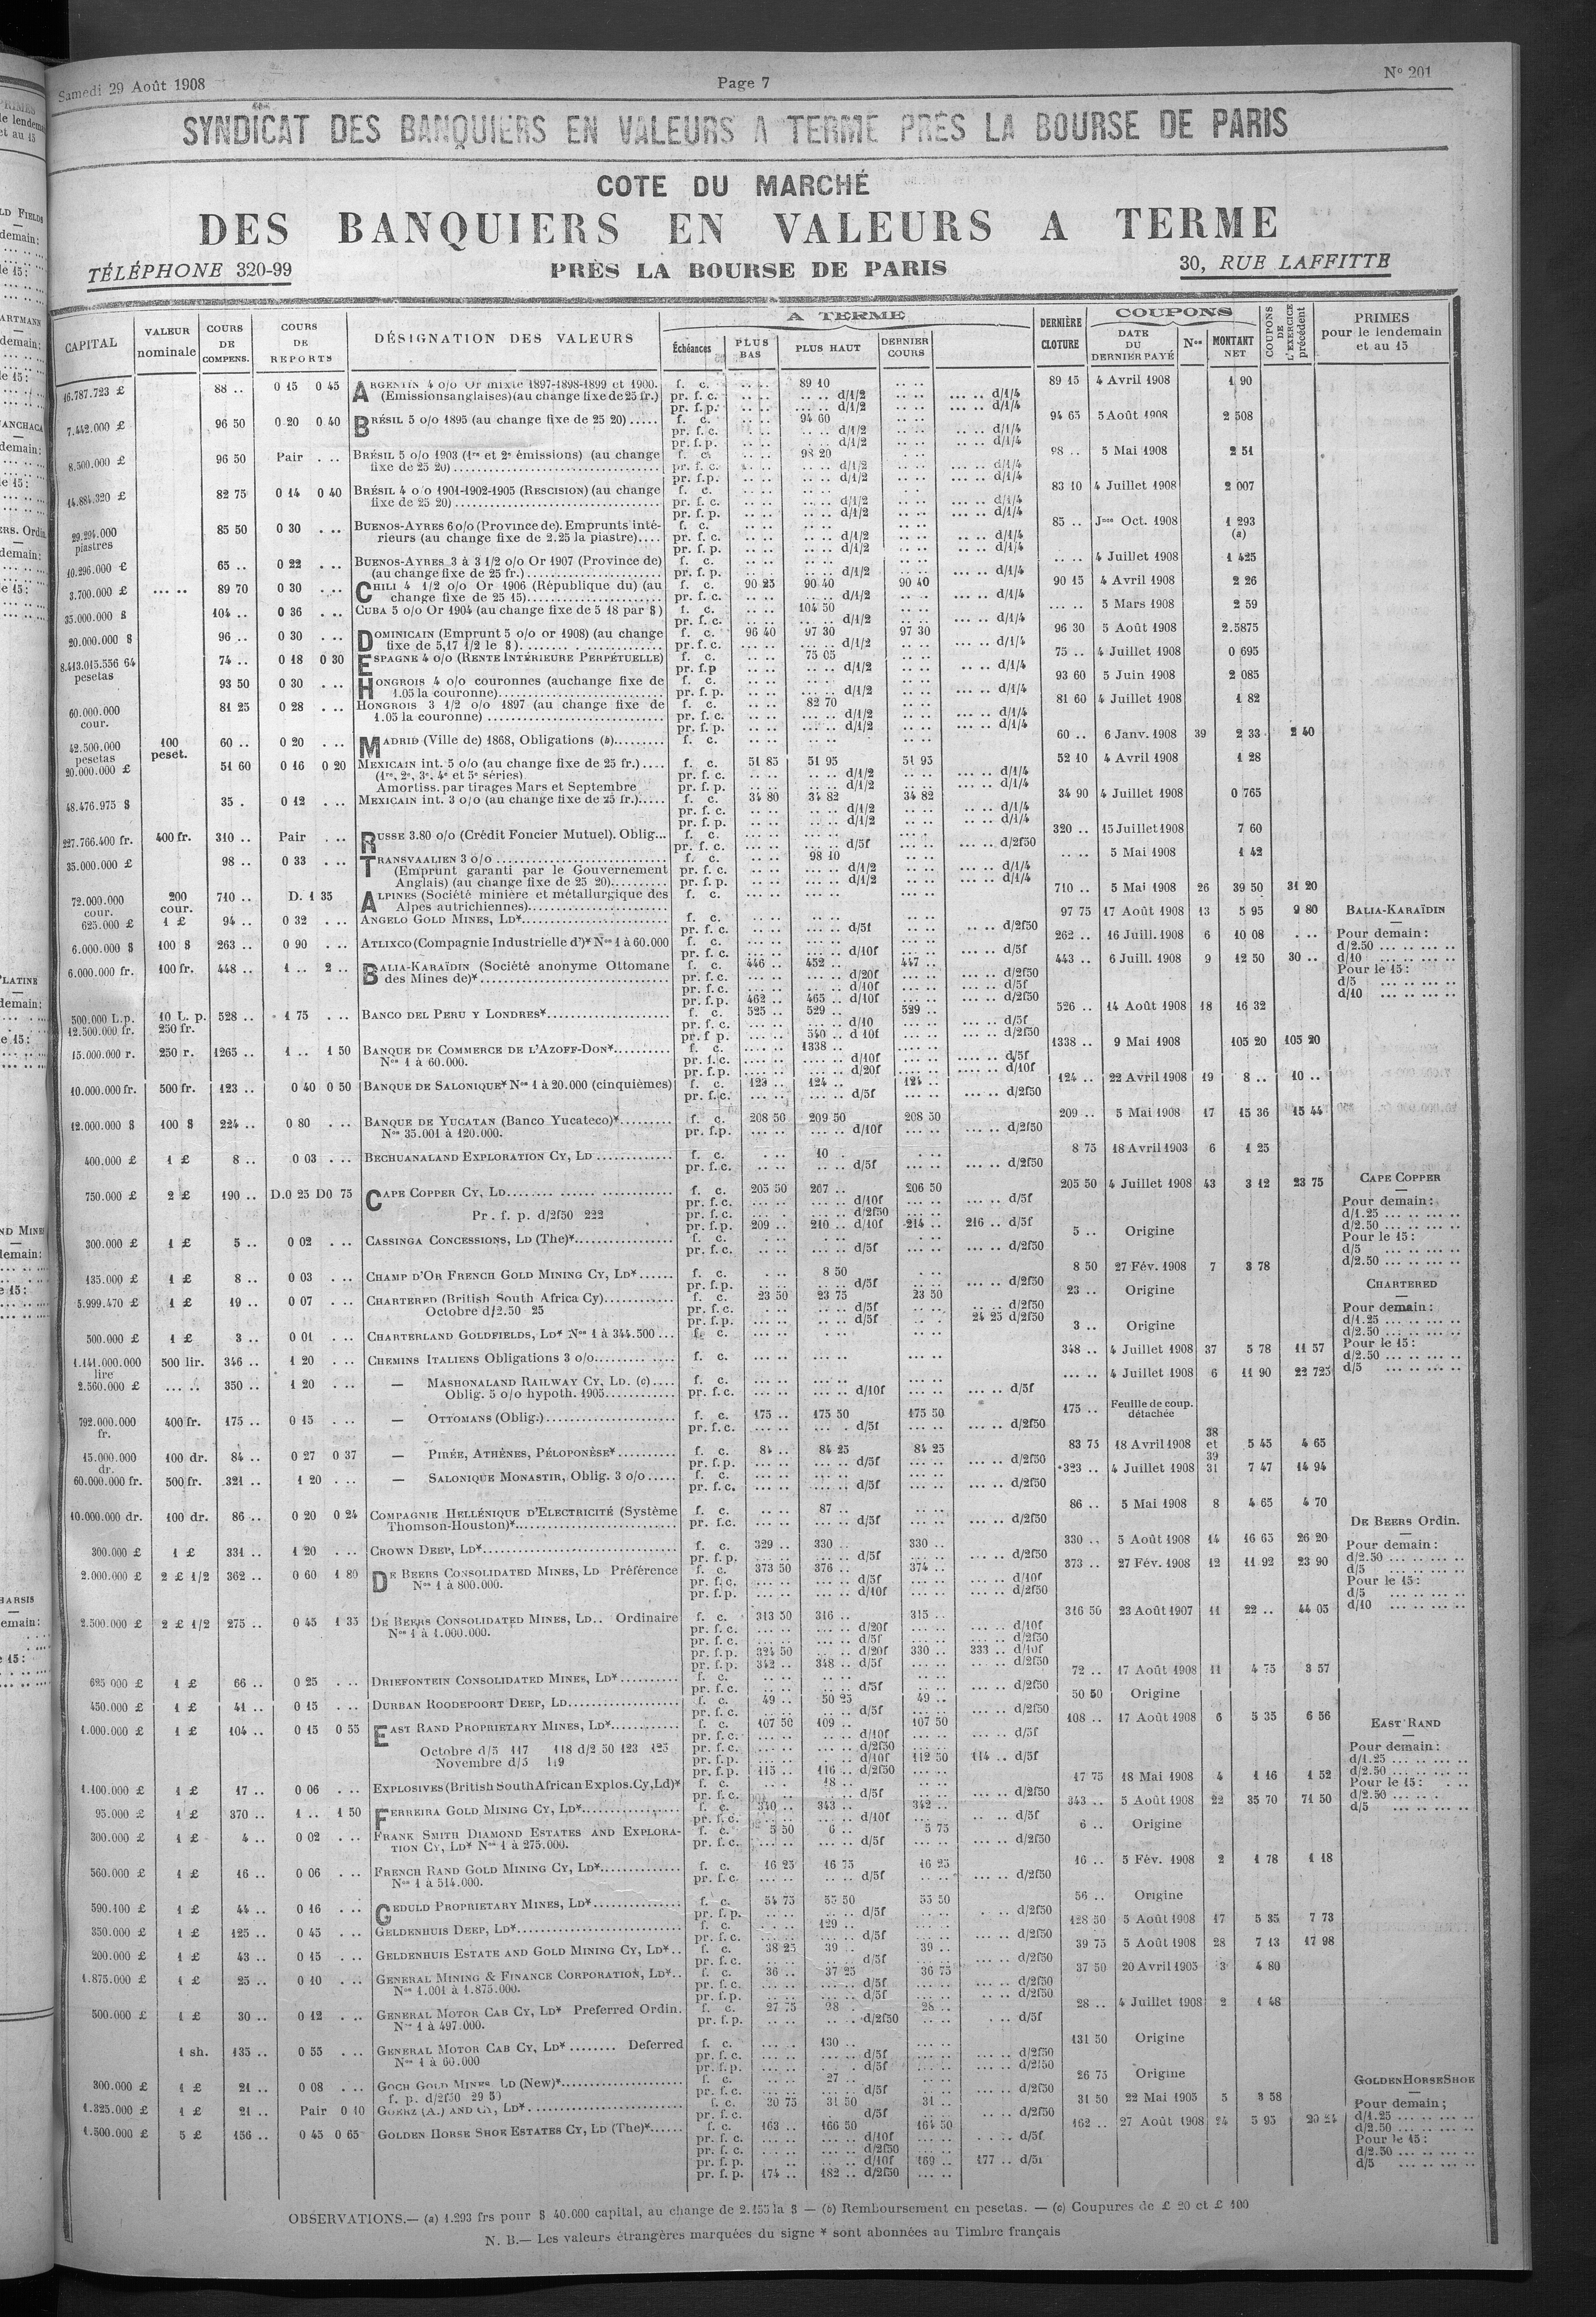 Samedi 29 Août 1908
Page 7
N° 201
SYNDICAT DES BANQUIERS EN VALEURS A TERME PRÈS LA BOURSE DE PARIS
COTE DU MARCHÉ
DES BANQUIERS EN VALEURS A TERME
TÉLÉPHONE 320-99
PRÈS LA BOURSE DE PARIS
30, RUE LAFFITTE
CAPITAL
VALEUR nominale
COURS DE COMPENS.
COURS DE REPORTS
DÉSIGNATION DES VALEURS
A TERME
Échéances
PLUS BAS
PLUS HAUT
DERNIER COURS
DERNIÈRE CLOTURE
COUPONS
DATE DU DERNIER PAYÉ
Nos
MONTANT NET
COUPONS DE L'EXERCICE précédent
PRIMES pour le lendemain et au 15
16.787.723 £ 88 .. 0 15 0 45 ARGENTIN 4 o/o Or mixte 1897-1898-1899 et 1900. f. c. 89 10 89 15 4 Avril 1908 1 90
(Emissions anglaises) (au change fixe de 25 fr.) pr. f. c. d/1/2 d/1/4
7.442.000 £ 96 50 0 20 0 40 BRÉSIL 5 o/o 1895 (au change fixe de 25 20) f. c. 94 60 94 65 5 Août 1908 2 508
8.500.000 £ 96 50 Pair BRÉSIL 5 o/o 1903 (1re et 2e émissions) (au change f. c. 98 20 98 .. 5 Mai 1908 2 51
fixe de 25 20)
14.884.320 £ 82 75 0 14 0 40 BRÉSIL 4 o/o 1901-1902-1905 (RESCISION) (au change f. c. 83 10 4 Juillet 1908 2 007
fixe de 25 20)
29.294.000 piastres 85 50 0 30 BUENOS-AYRES 6 o/o (Province de). Emprunts inté- f. c. 85 .. Jnce Oct. 1908 1 293 (a)
rieurs (au change fixe de 2.25 la piastre)
10.296.000 £ 65 .. 0 22 BUENOS-AYRES 3 à 3 1/2 o/o Or 1907 (Province de) f. c. 4 Juillet 1908 1 425
(au change fixe de 25 fr.) pr. f. p. d/1/2 d/1/4
3.700.000 £ 89 70 0 30 CHILI 4 1/2 o/o Or 1906 (République du) (au f. c. 90 25 90 40 90 40 90 15 4 Avril 1908 2 26
change fixe de 25 15) pr. f. c. d/1/2 d/1/4
35.000.000 $ 104 .. 0 36 CUBA 5 o/o Or 1904 (au change fixe de 5 18 par $) f. c. 104 50 5 Mars 1908 2 59
20.000.000 $ 96 .. 0 30 DOMINICAIN (Emprunt 5 o/o or 1908) (au change f. c. 96 40 97 30 97 30 96 30 5 Août 1908 2.5875
fixe de 5,17 1/2 le $) pr. f. c. d/1/2 d/1/4
8.413.015.556 64 pesetas 74 .. 0 18 0 30 ESPAGNE 4 o/o (RENTE INTÉRIEURE PERPÉTUELLE) f. c. 75 05 75 .. 4 Juillet 1908 0 695
93 50 0 30 HONGROIS 4 o/o couronnes (au change fixe de f. c. 93 60 5 Juin 1908 2 085
1.05 la couronne) pr. f. p. d/1/2 d/1/4
60.000.000 cour. 81 25 0 28 HONGROIS 3 1/2 o/o 1897 (au change fixe de f. c. 82 70 81 60 4 Juillet 1908 1 82
1.05 la couronne)
42.500.000 pesetas 100 peset. 60 .. 0 20 MADRID (Ville de) 1868, Obligations (b) f. c. 60 .. 6 Janv. 1908 39 2 33 2 40
20.000.000 £ 51 60 0 16 0 20 MEXICAIN int. 5 o/o (au change fixe de 25 fr.) f. c. 51 85 51 95 51 95 52 10 4 Avril 1908 1 28
(1re, 2e, 3e, 4e et 5e séries) pr. f. c. d/1/2 d/1/4
Amortiss. par tirages Mars et Septembre pr. f. p. d/1/2 d/1/4
48.476.975 $ 35 . 0 12 MEXICAIN int. 3 o/o (au change fixe de 25 fr.) f. c. 34 80 34 82 34 82 34 90 4 Juillet 1908 0 765
227.766.400 fr. 400 fr. 310 .. Pair RUSSE 3.80 o/o (Crédit Foncier Mutuel). Oblig... f. c. 320 .. 15 Juillet 1908 7 60
pr. f. c. d/5f d/2f50
35.000.000 £ 98 .. 0 33 TRANSVAALIEN 3 o/o f. c. 98 10 5 Mai 1908 1 42
(Emprunt garanti par le Gouvernement pr. f. c. d/1/2 d/1/4
Anglais) (au change fixe de 25 20) pr. f. p. d/1/2 d/1/4
72.000.000 cour. 200 cour. 710 .. D. 1 35 ALPINES (Société minière et métallurgique des f. c. 710 .. 5 Mai 1908 26 39 50 31 20
Alpes autrichiennes)
625.000 £ 1 £ 94 .. 0 32 ANGELO GOLD MINES, LD* f. c. 97 75 17 Août 1908 13 5 95 9 80
6.000.000 $ 100 $ 263 .. 0 90 ATLIXCO (Compagnie Industrielle d')* Nos 1 à 60.000 f. c. 262 .. 16 Juill. 1908 6 10 08
6.000.000 fr. 100 fr. 448 .. 1 .. 2 .. BALIA-KARAÏDIN (Société anonyme Ottomane f. c. 446 .. 452 .. 447 .. 443 .. 6 Juill. 1908 9 12 50 30 ..
des Mines de)* pr. f. c. d/20f d/2f50
pr. f. c. d/10f d/5f
pr. f. p. 462 .. 465 .. d/10f d/2f50
500.000 L.p. 12.500.000 fr. 10 L. p. 250 fr. 528 .. 1 75 BANCO DEL PERU Y LONDRES* f. c. 525 .. 529 .. 529 .. 526 .. 14 Août 1908 18 16 32
pr. f. c. d/10 d/5f
pr. f. p. 540 .. d 10f d/2f50
15.000.000 r. 250 r. 1265 .. 1 .. 1 50 BANQUE DE COMMERCE DE L'AZOFF-DON* f. c. 1338 .. 1338 .. 9 Mai 1908 105 20 105 20
Nos 1 à 60.000. pr. f. c. d/10f d/5f
pr. f. p. d/20f d/10f
10.000.000 fr. 500 fr. 123 .. 0 40 0 50 BANQUE DE SALONIQUE* Nos 1 à 20.000 (cinquièmes) f. c. 123 .. 124 .. 124 .. 124 .. 22 Avril 1908 19 8 .. 10 ..
pr. f. c. d/5f d/2f50
12.000.000 $ 100 $ 224 .. 0 80 BANQUE DE YUCATAN (Banco Yucateco)* f. c. 208 50 209 50 208 50 209 .. 5 Mai 1908 17 15 36 15 44
Nos 35.001 à 120.000. pr. f. p. d/10f d/2f50
400.000 £ 1 £ 8 .. 0 03 BECHUANALAND EXPLORATION CY, LD f. c. 10 . 8 75 18 Avril 1903 6 1 25
pr. f. c. d/5f d/2f50
750.000 £ 2 £ 190 .. D.0 25 D0 75 CAPE COPPER CY, LD f. c. 205 50 207 .. 206 50 205 50 4 Juillet 1908 43 3 12 23 75
pr. f. c. d/10f d/5f
Pr. f. p. d/2f50 222 pr. f. c. d/2f50
pr. f. p. 209 .. 210 .. d/10f 214 .. 216 .. d/5f
300.000 £ 1 £ 5 .. 0 02 CASSINGA CONCESSIONS, LD (The)* f. c. 5 .. Origine
pr. f. c. d/5f d/2f50
135.000 £ 1 £ 8 .. 0 03 CHAMP D'OR FRENCH GOLD MINING CY, LD* f. c. 8 50 8 50 27 Fév. 1908 7 3 78
pr. f. p. d/5f d/2f50
5.999.470 £ 1 £ 19 .. 0 07 CHARTERED (British South Africa Cy) f. c. 23 50 23 75 23 50 23 .. Origine
Octobre d/2.50 25 pr. f. c. d/5f d/2f50
pr. f. p. d/5f 24 25 d/2f50
500.000 £ 1 £ 3 .. 0 01 CHARTERLAND GOLDFIELDS, LD* Nos 1 à 344.500 f. c. 3 .. Origine
1.141.000.000 lire 500 lir. 346 .. 1 20 CHEMINS ITALIENS Obligations 3 o/o f. c. 348 .. 4 Juillet 1908 37 5 78 11 57
2.560.000 £ 350 .. 1 20 — MASHONALAND RAILWAY CY, LD. (c) f. c. 4 Juillet 1908 6 11 90 22 725
Oblig. 5 o/o hypoth. 1905 pr. f. c. d/10f d/5f
792.000.000 fr. 400 fr. 175 .. 0 15 — OTTOMANS (Oblig.) f. c. 175 .. 175 50 175 50 175 .. Feuille de coup. détachée
pr. f. c. d/5f d/2f50
15.000.000 dr. 100 dr. 84 .. 0 27 0 37 — PIRÉE, ATHÈNES, PÉLOPONÈSE* f. c. 84 .. 84 25 84 25 83 75 18 Avril 1908 38 et 39 5 45 4 65
pr. f. p. d/5f d/2f50
60.000.000 fr. 500 fr. 321 .. 1 20 — SALONIQUE MONASTIR, Oblig. 3 o/o f. c. 323 .. 4 Juillet 1908 31 7 47 14 94
pr. f. c. d/5f d/2f50
10.000.000 dr. 100 dr. 86 .. 0 20 0 24 COMPAGNIE HELLÉNIQUE D'ELECTRICITÉ (Système f. c. 87 .. 86 .. 5 Mai 1908 8 4 65 4 70
Thomson-Houston)* pr. f.c. d/5f d/2f50
300.000 £ 1 £ 331 .. 1 20 CROWN DEEP, LD* f. c. 329 .. 330 .. 330 .. 330 .. 5 Août 1908 14 16 65 26 20
pr. f. p. d/5f d/2f50
2.000.000 £ 2 £ 1/2 362 .. 0 60 1 80 DE BEERS CONSOLIDATED MINES, LD Préférence f. c. 373 50 376 .. 374 .. 373 .. 27 Fév. 1908 12 11 92 23 90
Nos 1 à 800.000. pr. f. c. d/5f d/10f
pr. f. p. d/10f d/2f50
2.500.000 £ 2 £ 1/2 275 .. 0 45 1 35 DE BEERS CONSOLIDATED MINES, LD.. Ordinaire f. c. 313 50 316 .. 315 .. 316 50 23 Août 1907 11 22 .. 44 05
Nos 1 à 1.000.000. pr. f. c. d/20f d/10f
pr. f. c. d/5f d/2f50
pr. f. p. 324 50 d/20f 330 .. 333 .. d/10f
pr. f. p. 342 .. 348 .. d/5f d/2f50
625 000 £ 1 £ 66 .. 0 25 DRIEFONTEIN CONSOLIDATED MINES, LD* f. c. 72 .. 17 Août 1908 11 4 75 3 57
pr. f. c. d/5f d/2f50
450.000 £ 1 £ 41 .. 0 15 DURBAN ROODEPOORT DEEP, LD f. c. 49 .. 50 25 49 .. 50 50 Origine
pr. f. c. d/5f d/2f50
1.000.000 £ 1 £ 104 .. 0 15 0 55 EAST RAND PROPRIETARY MINES, LD* f. c. 107 50 109 .. 107 50 108 .. 17 Août 1908 6 5 35 6 56
pr. f. c. d/10f d/5f
Octobre d/5 117 118 d/2 50 123 125 pr. f. c. d/2f50
Novembre d/5 119 pr. f. p. d/10f 112 50 114 .. d/5f
pr. f. p. 115 .. 116 .. d/2f50
1.100.000 £ 1 £ 17 .. 0 06 EXPLOSIVES (British South African Explos. Cy, Ld)* f. c. 18 .. 17 75 18 Mai 1908 4 1 16 1 52
pr. f. c. d/5f d/2f50
95.000 £ 1 £ 370 .. 1 .. 1 50 FERREIRA GOLD MINING CY, LD* f. c. 340 .. 343 .. 342 .. 343 .. 5 Août 1908 22 35 70 71 50
pr. f. c. d/10f d/5f
300.000 £ 1 £ 4 .. 0 02 FRANK SMITH DIAMOND ESTATES AND EXPLORA- f. c. 5 50 6 .. 5 75 6 .. Origine
TION CY, LD* Nos 1 à 275.000. pr. f. c. d/5f d/2f50
560.000 £ 1 £ 16 .. 0 06 FRENCH RAND GOLD MINING CY, LD* f. c. 16 25 16 75 16 25 16 .. 5 Fév. 1908 2 1 78 1 18
Nos 1 à 514.000. pr. f. c. d/5f d/2f50
590.100 £ 1 £ 44 .. 0 16 GEDULD PROPRIETARY MINES, LD* f. c. 54 75 55 50 55 50 56 .. Origine
pr. f. p. d/5f d/2f50
350.000 £ 1 £ 125 .. 0 45 GELDENHUIS DEEP, LD* f. c. 129 .. 128 50 5 Août 1908 17 5 35 7 73
pr. f. c. d/5f d/2f50
200.000 £ 1 £ 43 .. 0 15 GELDENHUIS ESTATE AND GOLD MINING CY, LD* f. c. 38 25 39 .. 39 .. 39 75 5 Août 1908 28 7 13 17 98
pr. f. c. d/5f d/2f50
1.875.000 £ 1 £ 25 .. 0 10 GENERAL MINING & FINANCE CORPORATION, LD* f. c. 36 .. 37 25 36 75 37 50 20 Avril 1905 3 4 80
Nos 1.001 à 1.875.000. pr. f. c. d/5f d/2f50
pr. f. p. d/5f d/2f50
500.000 £ 1 £ 30 .. 0 12 GENERAL MOTOR CAB CY, LD* Preferred Ordin. f. c. 27 75 28 . 28 .. 28 .. 4 Juillet 1908 2 1 48
Nos 1 à 497.000. pr. f. p. d/2f50 d/5f
1 sh. 135 .. 0 55 GENERAL MOTOR CAB CY, LD* Deferred f. c. 130 .. 131 50 Origine
Nos 1 à 60.000 pr. f. c. d/5f d/2f50
pr. f. p. d/5f d/2f50
300.000 £ 1 £ 21 .. 0 08 GOCH GOLD MINES, LD (New)* f. c. 27 .. 26 75 Origine
f. p. d/2f50 29 50 pr. f. c. d/5f d/2f50
1.325.000 £ 1 £ 21 .. Pair 0 10 GOERZ (A.) AND CY, LD* f. c. 30 75 31 50 31 .. 31 50 22 Mai 1905 5 3 58
pr. f. c. d/5f d/2f50
1.500.000 £ 5 £ 156 .. 0 45 0 65 GOLDEN HORSE SHOE ESTATES CY, LD (The)* f. c. 163 .. 166 50 164 50 162 .. 27 Août 1908 24 5 95 20 24
pr. f. c. d/10f d/5f
pr. f. c. d/2f50
pr. f. p. d/10f 169 .. 177 .. d/5f
pr. f. p. 174 .. 182 .. d/2f50
BALIA-KARAÏDIN
Pour demain :
d/2.50
d/10
Pour le 15 :
d/5
d/10
CAPE COPPER
Pour demain :
d/1.25
d/2.50
Pour le 15 :
d/5
d/2.50
CHARTERED
Pour demain :
d/1.25
d/2.50
Pour le 15 :
d/2.50
d/5
DE BEERS Ordin.
Pour demain :
d/2.50
d/5
Pour le 15 :
d/5
d/10
EAST RAND
Pour demain :
d/1.25
d/2.50
Pour le 15 :
d/2.50
d/5
GOLDEN HORSE SHOE
Pour demain ;
d/1.25
d/2.50
Pour le 15 :
d/2.50
d/5
OBSERVATIONS.— (a) 1.293 frs pour $ 40.000 capital, au change de 2.155 la $ — (b) Remboursement en pesetas. — (c) Coupures de £ 20 et £ 100
N. B.— Les valeurs étrangères marquées du signe * sont abonnées au Timbre français